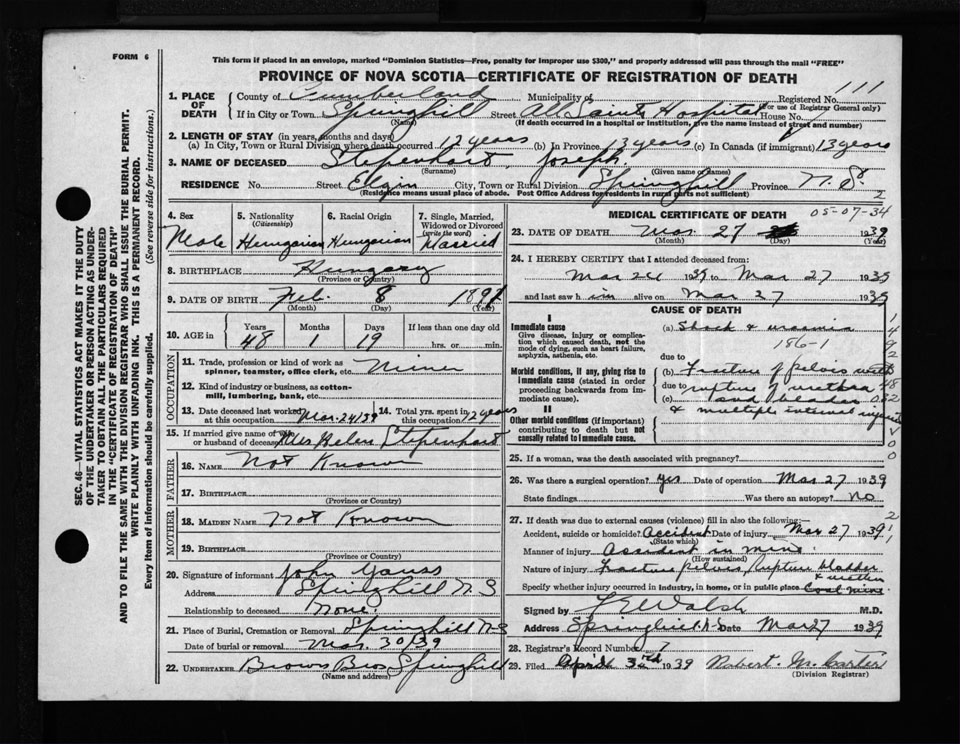 FORM 6
This form if placed in an envelope, marked "Dominion Statistics—Free, penalty for improper use $300," and properly addressed will pass through the mail "FREE"
PROVINCE OF NOVA SCOTIA—CERTIFICATE OF REGISTRATION OF DEATH
111
1. PLACE OF DEATH County of Cumberland Municipality of Registered No. (For use of Registrar General only)
If in City or Town Springhill (Name) Street All Saints Hospital House No.
(If death occurred in a hospital or institution, give the name instead of street and number)
2. LENGTH OF STAY (in years, months and days)
(a) In City, Town or Rural Division where death occurred 12 years (b) In Province 13 years (c) In Canada (if immigrant) 13 years
3. NAME OF DECEASED Stepenhart Joseph.
(Surname) (Given name or names)
RESIDENCE No. Street Elgin City, Town or Rural Division Springhill Province N. S.
(Residence means usual place of abode. Post Office Address for residents in rural parts not sufficient) 2
4. Sex Male
5. Nationality (Citizenship) Hungarian
6. Racial Origin Hungarian
7. Single, Married, Widowed or Divorced (write the word) Married
8. BIRTHPLACE Hungary
(Province or Country)
9. DATE OF BIRTH Feb. 8 1891
(Month) (Day) (Year)
10. AGE in Years 48 Months 1 Days 19 If less than one day old hrs. or min.
OCCUPATION
11. Trade, profession or kind of work as spinner, teamster, office clerk, etc. Miner
12. Kind of industry or business, as cotton-mill, lumbering, bank, etc.
13. Date deceased last worked at this occupation Mar. 24/39 14. Total yrs. spent in this occupation 12 years
15. If married give name of wife or husband of deceased Mrs Helen Stepenhart
FATHER
16. NAME Not Known
17. BIRTHPLACE
(Province or Country)
MOTHER
18. MAIDEN NAME Not Known
19. BIRTHPLACE
(Province or Country)
20. Signature of informant John
Address Springhill N.S
Relationship to deceased None.
21. Place of Burial, Cremation or Removal Springhill N.S
Date of burial or removal Mar. 30/39
22. UNDERTAKER Brown Bros Springhill
(Name and address)
MEDICAL CERTIFICATE OF DEATH
05-07-34
23. DATE OF DEATH Mar 27 1939
(Month) (Day) (Year)
24. I HEREBY CERTIFY that I attended deceased from:
Mar 24 1939 to Mar 27 1939
and last saw h im alive on Mar 27 1939
CAUSE OF DEATH
I
Immediate cause
Give disease, injury or complication which caused death, not the mode of dying, such as heart failure, asphyxia, asthenia, etc.
(a) Shock & uraemia
186-1
due to
Morbid conditions, if any, giving rise to immediate cause (stated in order proceeding backwards from immediate cause).
(b) Fracture of pelvis with
due to rupture of urethra
(c) and bladder
& multiple internal injuries
II
Other morbid conditions (if important) contributing to death but not causally related to immediate cause.
25. If a woman, was the death associated with pregnancy?
26. Was there a surgical operation? yes Date of operation Mar 27 1939
State findings Was there an autopsy? no
27. If death was due to external causes (violence) fill in also the following:—
Accident, suicide or homicide? Accident Date of injury Mar 27 1939
(State which)
Manner of injury Accident in mine.
(How sustained)
Nature of injury Fracture pelvis, rupture bladder & urethra
Specify whether injury occurred in industry, in home, or in public place Coal mine.
Signed by Walsh M.D.
Address Springhill N.S Date Mar 27 1939
28. Registrar's Record Number 7
29. Filed April 3rd 1939 Robert
(Division Registrar)
SEC. 46—VITAL STATISTICS ACT MAKES IT THE DUTY
OF THE UNDERTAKER OR PERSON ACTING AS UNDER-
TAKER TO OBTAIN ALL THE PARTICULARS REQUIRED
IN THE "CERTIFICATE OF REGISTRATION OF DEATH"
AND TO FILE THE SAME WITH THE DIVISION REGISTRAR WHO SHALL ISSUE THE BURIAL PERMIT.
WRITE PLAINLY WITH UNFADING INK. THIS IS A PERMANENT RECORD.
Every item of information should be carefully supplied. (See reverse side for instructions.)